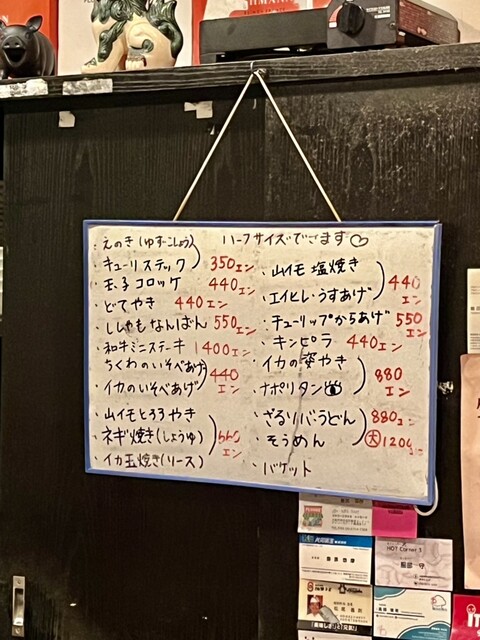 ハーフサイズできます♡
・えのき(ゆずこしょう)
・キューリスティック
350エン
・玉子コロッケ 440エン
・どてやき 440エン
・ししゃもなんばん 550エン
・和牛ミニステーキ 1400エン
・ちくわのいそべあげ
・イカのいそべあげ
440エン
・山イモとろろやき
・ネギ焼き(しょうゆ)
・イカ玉焼き(ソース)
660エン
・山イモ塩焼き
・エイヒレ・うすあげ
440エン
・チューリップからあげ 550エン
・キンピラ 440エン
・イカの姿やき
・ナポリタン
880エン
・ざるそば・うどん
・そうめん
880エン
大1200エン
・バケット
HOT Corner